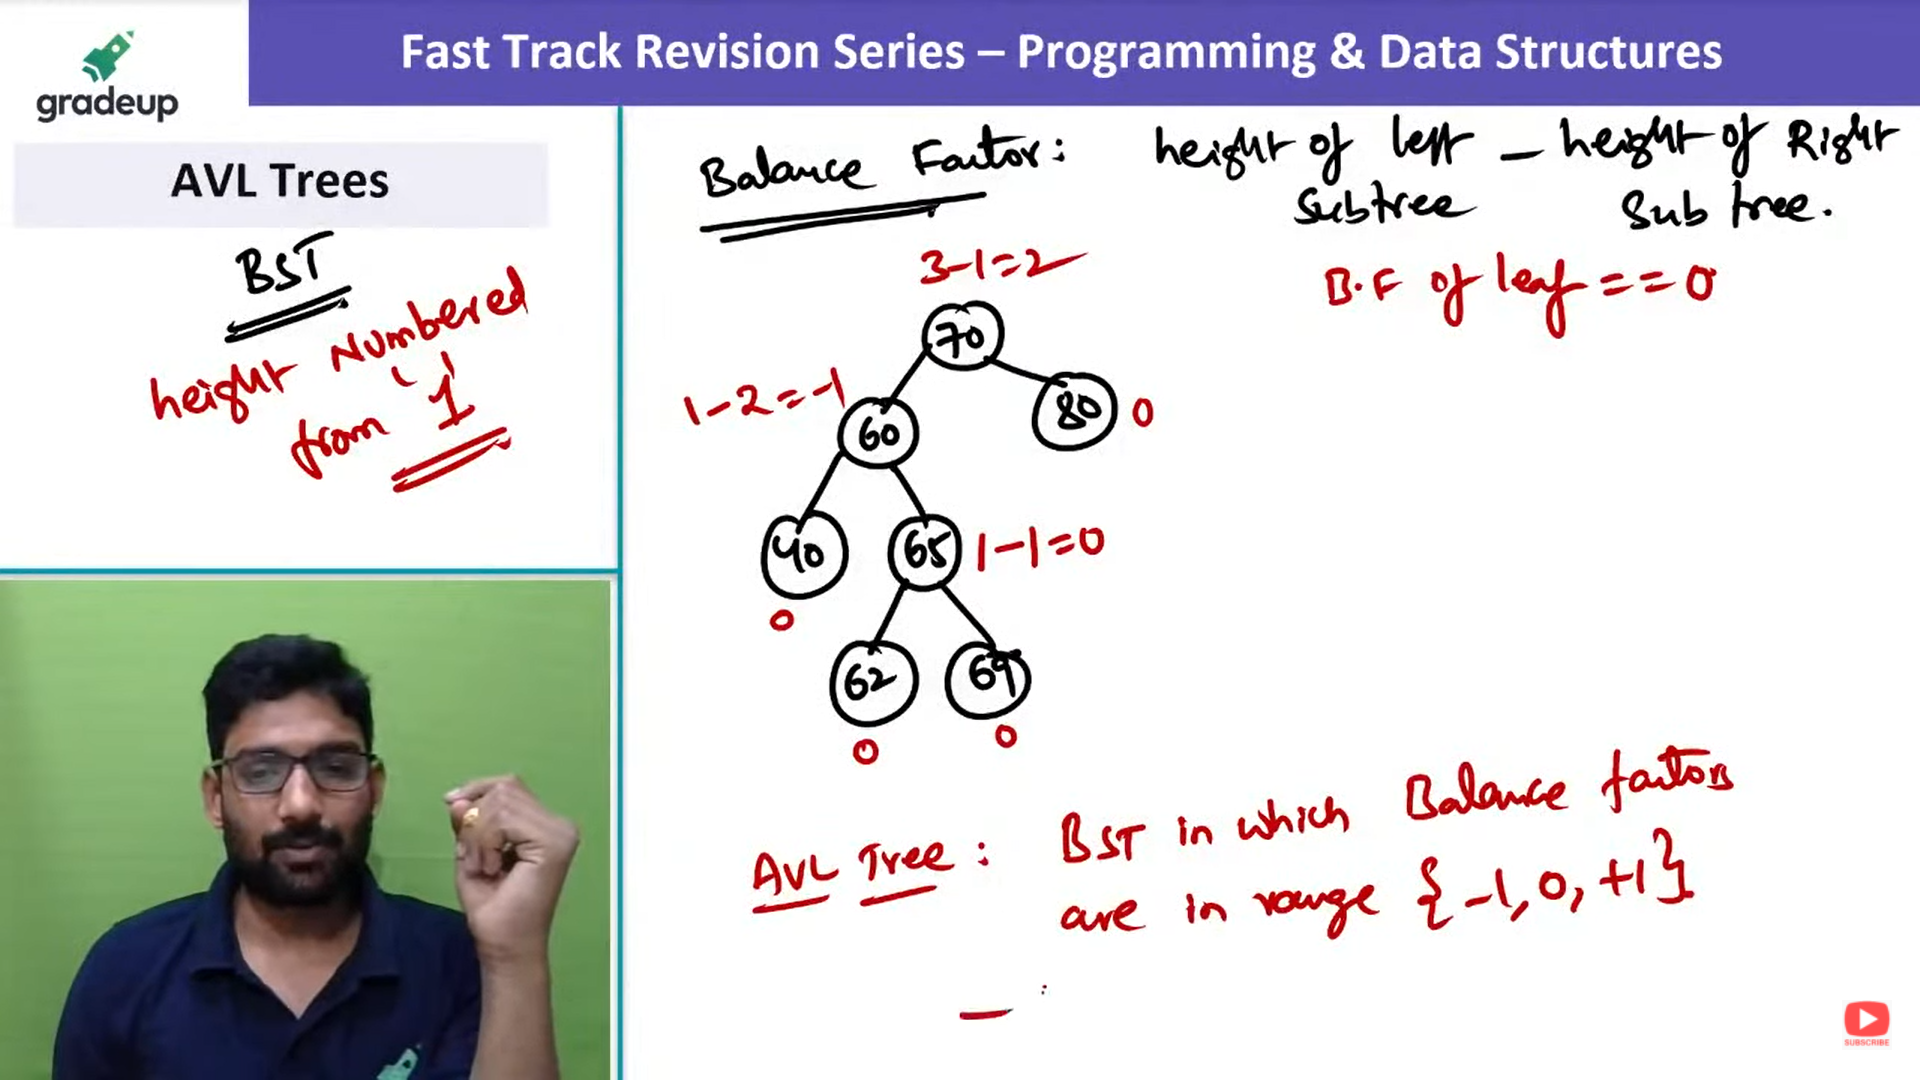 gradeup
Fast Track Revision Series – Programming & Data Structures
AVL Trees
BST
height Numbered
from '1'
Balance Factor: height of left – height of Right
Subtree Sub tree.
B.F of leaf == 0
3-1=2
70
1-2=-1
60
80 0
40
65 1-1=0
0
62
69
0
0
AVL Tree: BST in which Balance factors
are in range {-1, 0, +1}
SUBSCRIBE